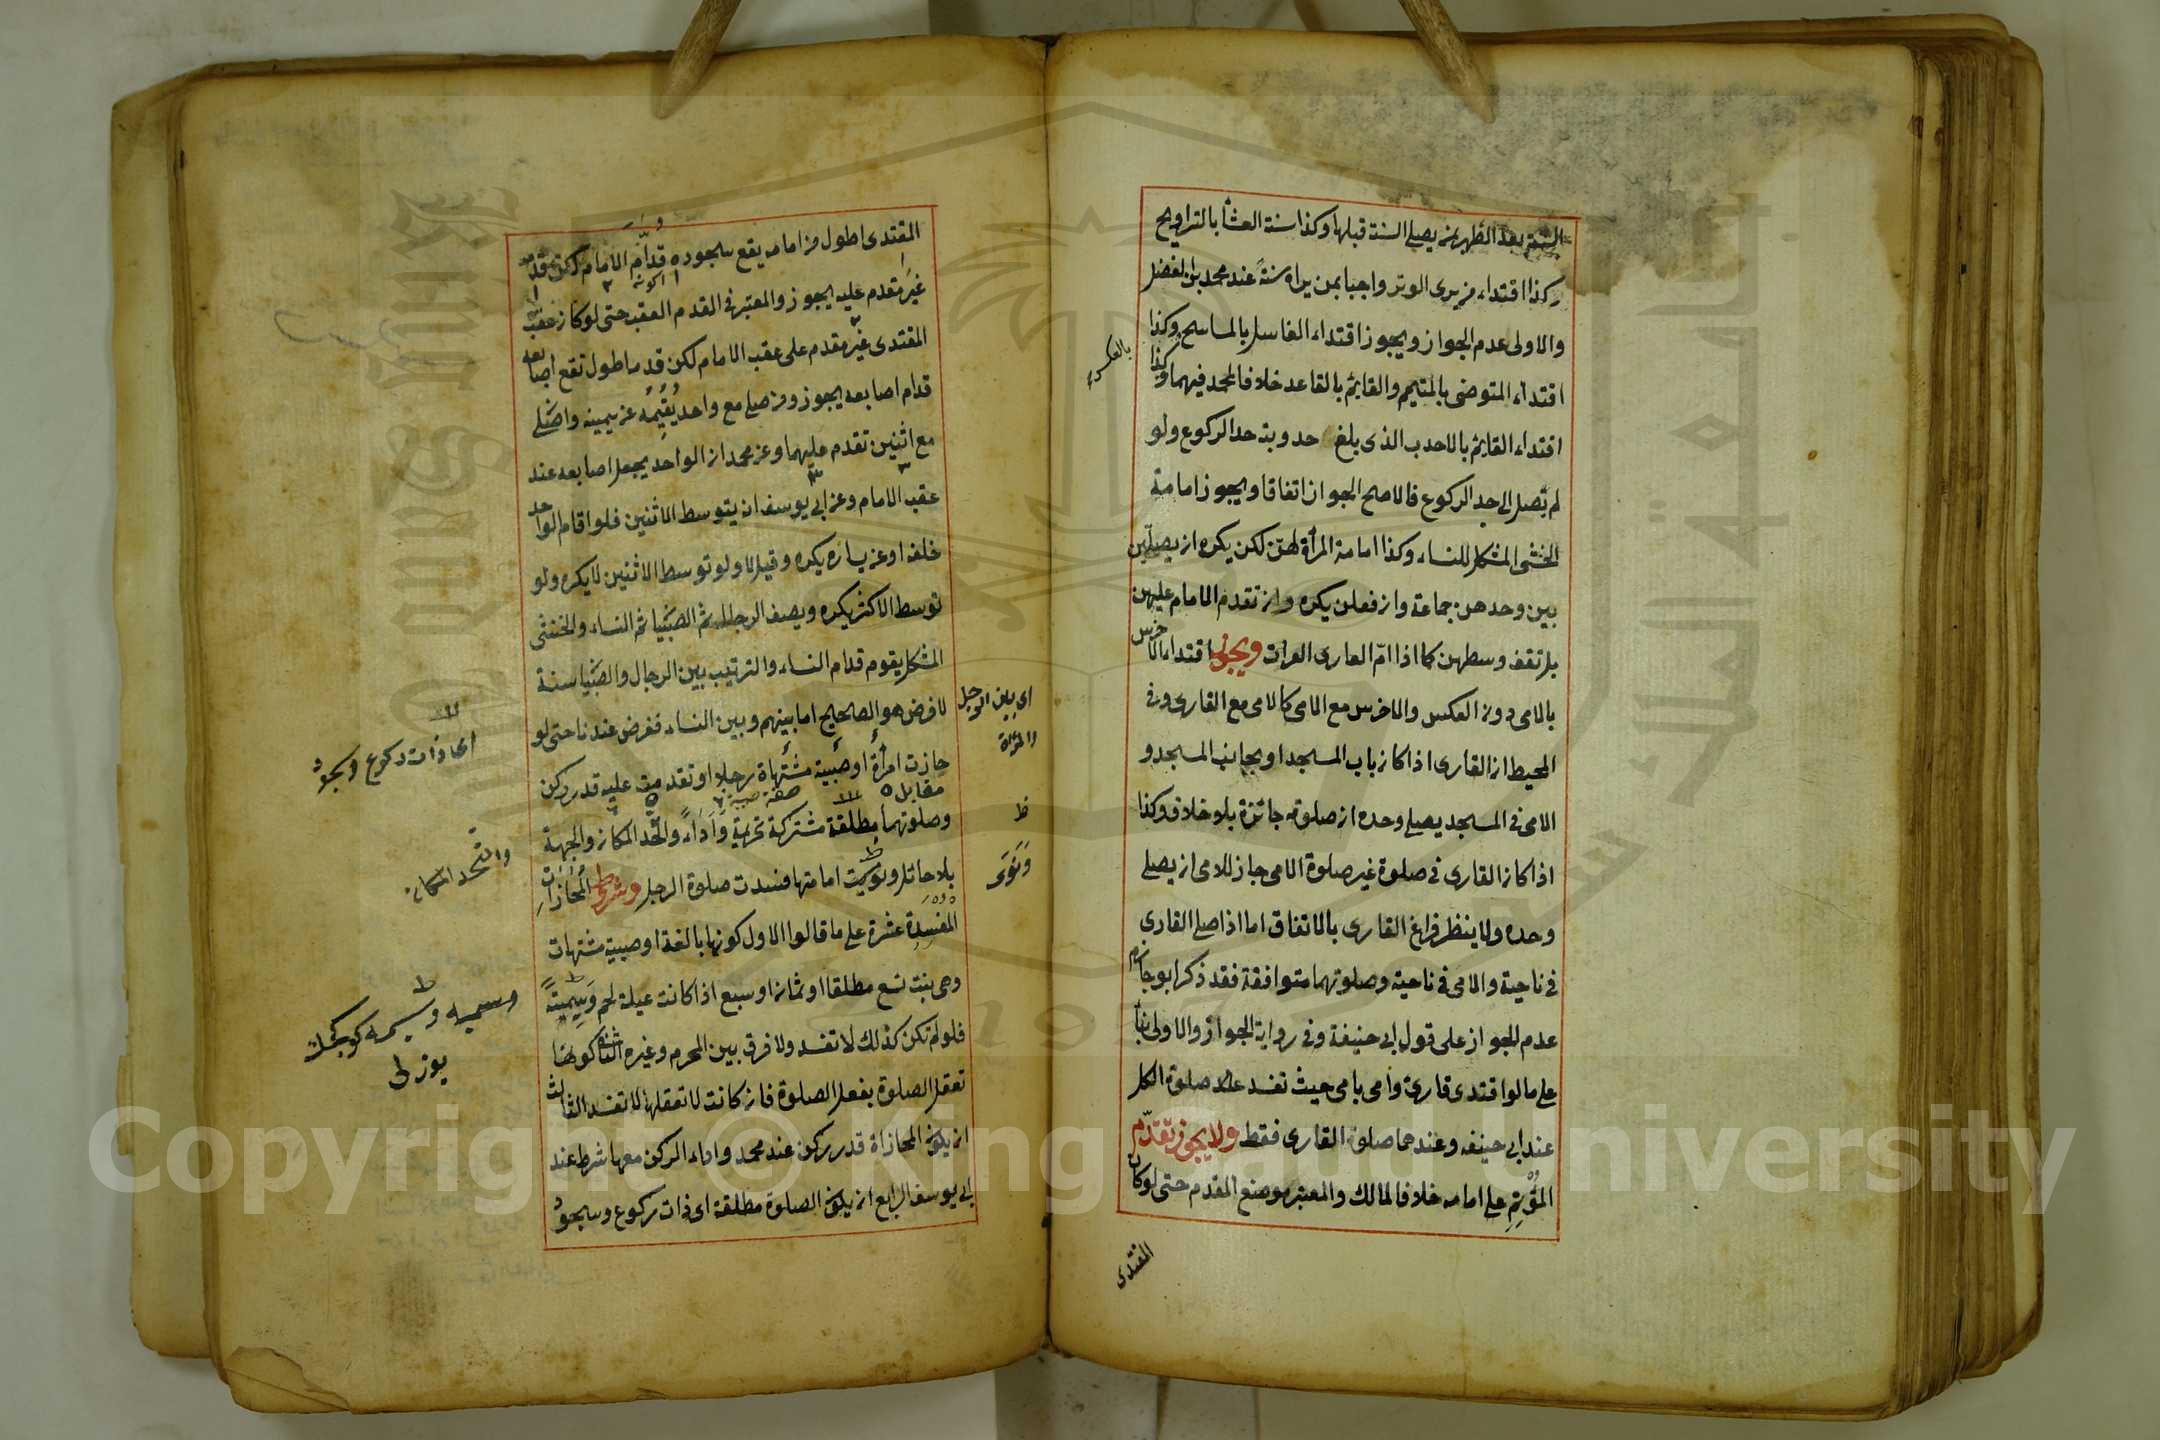 السنة بعد الظهر بمن يصلى السنة قبلها وكذا سنة العشا بالتراويح
وكذا اقتداء من يرى الوتر واجبا بمن يراه سنة عند محمد بن الفضل
والاولى عدم الجواز ويجوز اقتداء الغاسل بالماسح وكذا
بالعكس
اقتداء المتوضى بالمتيمم والقايم بالقاعد خلافا لمحمد فيهما وكذا
اقتداء القايم بالاحدب الذى بلغ حدوبته حد الركوع ولو
لم تصل الى حد الركوع فالاصح الجواز اتفاقا ويجوز امامة
الخنثى المشكل للنساء وكذا امامة المرأة لهن لكن يكره ان يصلين
بين وحدهن جماعة وان فعلن يكره وان تقدم الامام عليهن
بل تقف وسطهن كما اذا امّ العارى العراة ويجوز اقتداء الاخرس
بالامى دون العكس والاخرس مع الامى كالامى مع القارى وفى
المحيط ان القارى اذا كان بباب المسجد او بجانب المسجد و
الامى فى المسجد يصلى وحده ان صلوته جائزة بلا خلاف وكذا
اذا كان القارى فى صلوة غير صلوة الامى جاز للامى ان يصلى
وحده ولا ينظر فراغ القارى بالاتفاق اما اذا صلى القارى
فى ناحية والامى فى ناحية وصلوتهما متوافقة فقد ذكر ابو حازم
عدم الجواز على قول ابى حنيفة وفى رواية الجواز والاولى بناء
على ما لو اقتدى قارئ وامى بامى حيث تفسد صلوة الكل
عند ابى حنيفه وعندهما صلوة القارى فقط ولا يجوز تقدّم
المؤتم على امامه خلافا لمالك والمعتبر موضع القدم حتى لو كان
المقتدى
المقتدى اطول من امامه يقع سجوده قدام الامام لكن قدمه
غير متقدم عليه يجوز والمعتبر فى القدم العقب حتى لو كان عقب
المقتدى غير متقدم على عقب الامام لكن قدمه اطول تقع اصابعه
قدام اصابعه يجوز ومن صلى مع واحد يقيمه عن يمينه وان صلى
مع اثنين تقدم عليهما وعن محمد ان الواحد يجعل اصابعه عند
عقب الامام وعن ابى يوسف ان يتوسط الاثنين فلو اقام الواحد
خلفه او عن يساره يكره وقيل لا ولو توسط الاثنين لا يكره ولو
توسط الاكثر يكره ويصف الرجال ثم الصبيا ثم النساء والخنثى
المشكل يقوم قدام النساء والترتيب بين الرجال والصبيا سنة
لا فرض هو الصحيح اما بينهم وبين النساء ففرض عندنا حتى لو
اى بين الرجل
والمرأة
حازت امرأة او صبية مشتهاة رجلا او تقدمت عليه قدر ركن
مقابل صفة صبية
وصلوتهما مطلقة مشتركة تحريمة وأداء واتحد المكان والجهة
اى ذات ركوع وسجود
بلا حائل ونويت امامتها فسدت صلوة الرجل وشروط المحاذات
واتحد المكان
ونوى
المفسدة عشرة على ما قالوا الاول كونها بالغة او صبية مشتهات
وهى بنت تسع مطلقا او ثمان او سبع اذا كانت عبلة لحم وسيمة
فلو لم تكن كذلك لا تفسد ولا فرق بين المحرم وغيره الثانى كونها
تعقل الصلوة بفعل الصلوة فان كانت لا تعقلها لا تفسد الثالث
ان يكون المحاذاة قدر ركن عند محمد واداء الركن معها شرط عند
ابى يوسف الرابع ان يكون الصلوة مطلقة اى ذات ركوع وسجود
Copyright © King Saud University